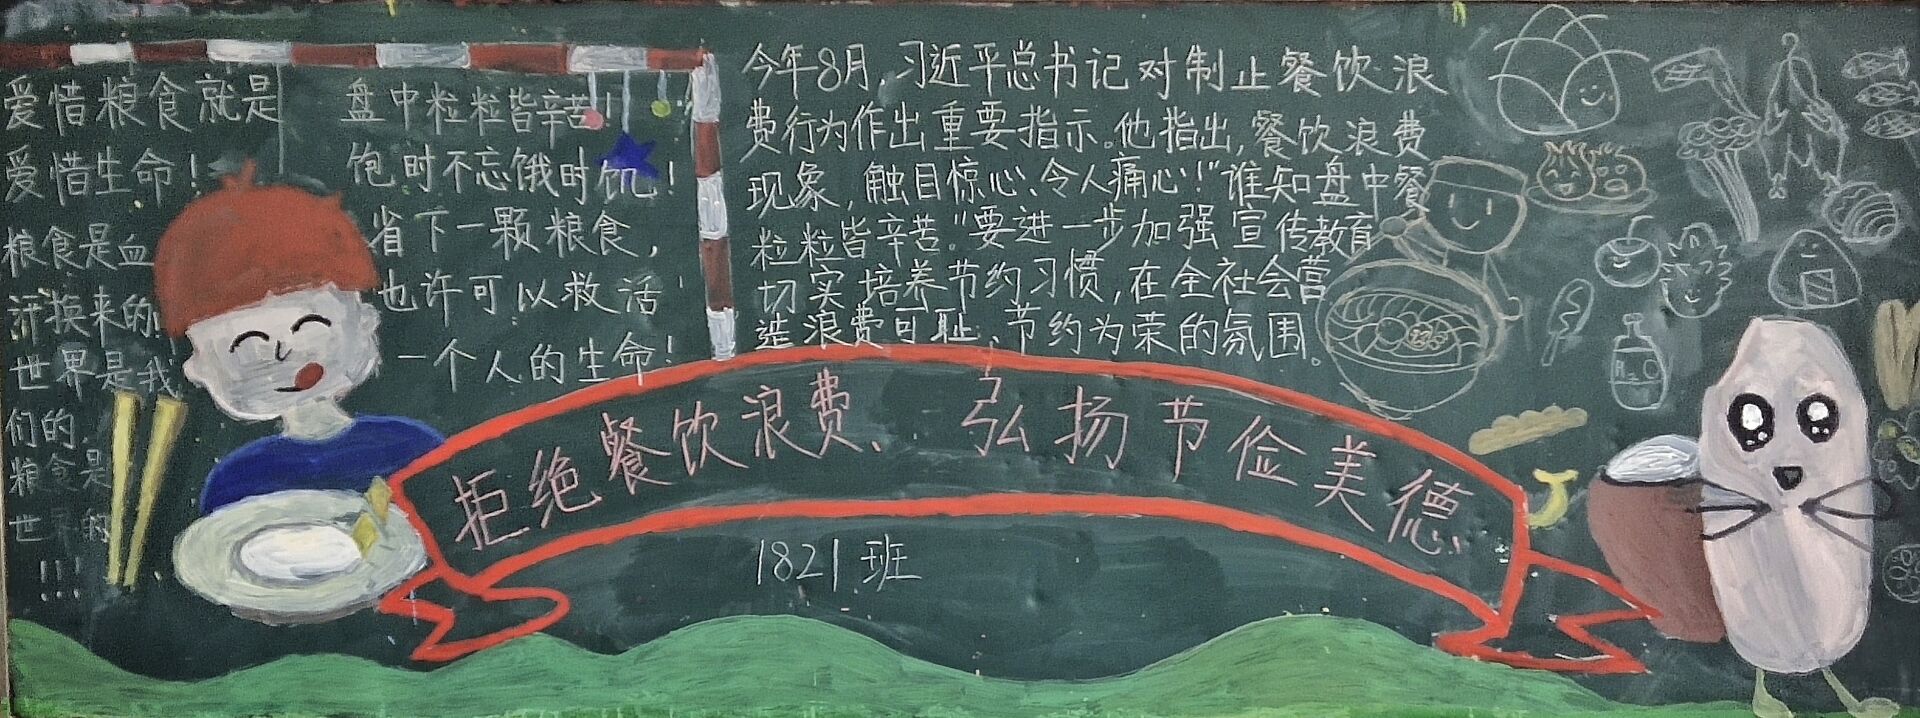 爱惜粮食就是
爱惜生命！
粮食是血
汗换来的！
世界是我
们的，
粮食是
世界的
!!!
盘中粒粒皆辛苦！
饱时不忘饿时饥！
省下一颗粮食，
也许可以救活
一个人的生命！
今年8月，习近平总书记对制止餐饮浪
费行为作出重要指示。他指出，餐饮浪费
现象，触目惊心、令人痛心！“谁知盘中餐
粒粒皆辛苦。”要进一步加强宣传教育
切实培养节约习惯，在全社会营
造浪费可耻、节约为荣的氛围。
拒绝餐饮浪费、弘扬节俭美德
1821班
H2O